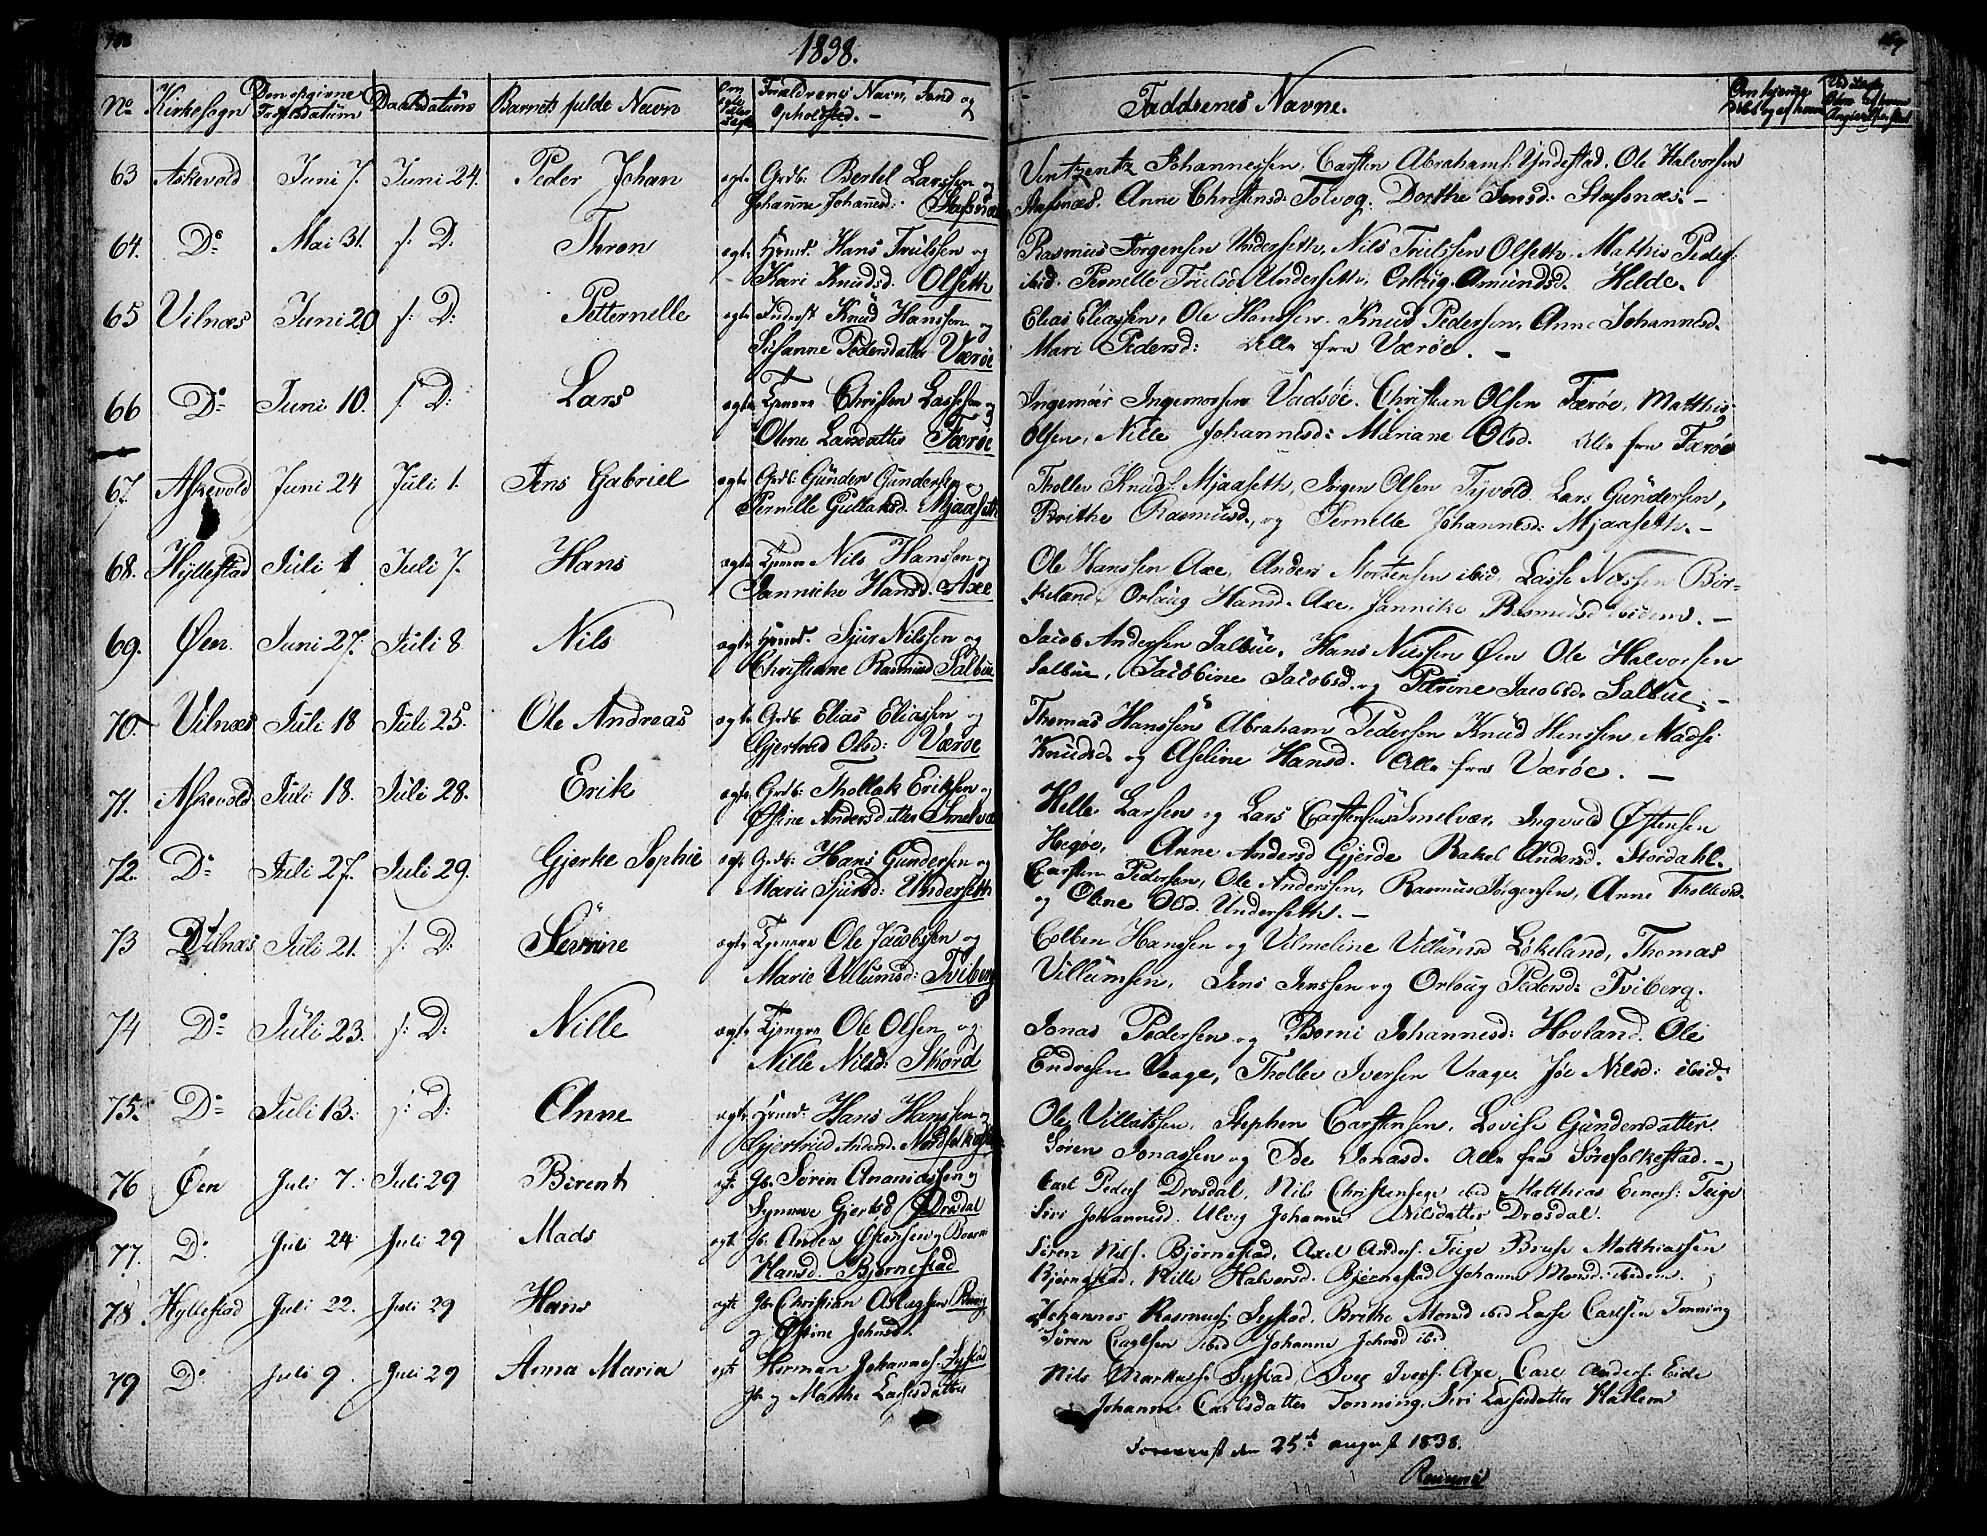 1838.
No. Kirkesogn Den opgivne Fødselsdatum Daabsdatum Barnets fulde Navn Forældrenes Navn, Stand og Opholdsted. Faddrenes Navne.
63 Askevold Juni 7. Juni 24. Peder Johan egte Grdb: Bertel Larssen og Johanne Johannesd: Stafsnæs
Vintzentz Johannessen, Carsten Abrahams: Yndestad. Ole Halvorsen
Stafsnæs. Anne Christensd: Tolvog. Dorthe Jensd: Stafsnæs.
64. Do Mai 31. s: D: Thron egte Huusm. Hans Truelssen og Kari Knudsd. Olseth
Rasmus Jørgensen Underseth, Nils Truelssen Olseth, Mathis Peders:
ibid. Pernelle Truelsd Underseth, Orloug Amundsd. Helde.
65 Vilnæs Juni 20 s: D: Petternelle egte Inderst Knud Hanssen og Susanne Pedersdatter Værøe
Elias Eliassen, Ole Hanssen. Knud Pedersen, Anne Johannesd.
Mari Pedersd: Alle fra Værøe.
66 Do Juni 10. s: D: Lars egte Tjenere Christen Lassesen og Olene Larsdatter Færøe
Ingemoer Ingemorsen Vadsøe. Christian Olsen Færøe, Matthis
Olsen, Nille Johannesd: Mariane Olsd. Alle fra Færøe
67. Askevold Juni 24 Juli 1. Jens Gabriel egte Grdb: Gunder Gundersen og Pernille Gullaksd. Mjaaseth
Thollev Knuds: Mjaaseth, Jørgen Olsen Tyvold. Lars Gundersen,
Brithe Rasmusd, og Pernelle Johannesd: Mjaaseth.
68. Hyllestad Juli 1 Juli 7. Hans egte Tjenere Nils Hanssen og Jannicke Hansd. Axe
Ole Hanssen Axe, Anders Mortensen ibid, Lasse Nilssen Bir-
keland, Orloug Hansd. Axe, Jannike Rasmusd ibidem.
69. Øen Juni 27. Juli 8 Nils egte Huusm. Sjur Nilssen og Christiane Rasmusd Salbue
Jacob Anderssen Salbue, Hans Nilssen Øen Ole Halvorsen
Salbue, Jacobine Jacobsd. og Petrine Jacobsd. Salbue.
70. Vilnæs Juli 18 Juli 25. Ole Andreas egte Grdb. Elias Eliassen og Gjertrud Olsd: Værøe
Thomas Hanssen Abraham Pedersen Knud Henssen, Madse
Knudsd. og Aseline Hansd. Alle fra Værøe.
71. Askevold Juli 18. Juli 28. Erik egte Grdb: Thollak Eriksen og Østine Andersdatter Smelvær
Helle Larsen og Lars Carstensen Smelvær, Ingvald Østensen
Hegøe, Anne Andersd Gjerde Rakel Andersd. Stordahl.
72. Do Juli 27. Juli 29. Gjerke Sophie egte Grdb: Hans Gundersen og Marie Sjursd: Underseth
Carsten Pedersen, Ole Anderssen, Rasmus Jørgensen, Anne Thollevsd.
og Olene Olsd. Underseth.
73 Vilnæs Juli 21. s: D: Severine egte Tjenere Ole Jacobssen og Marie Villumsd: Tviberg
Colben Hanssen og Vilmeline Villumsd Løkeland, Thomas
Villumsen, Jens Jenssen og Orloug Pedersd: Tviberg.
74 Do Juli 23. s: D: Nille egte Tjenere Ole Olsen og Nille Nilsd: Skord
Jonas Pedersen og Berni Johannesd: Hovland. Ole
Endresen Vaage, Thollev Iversen Vaage. Joe Nilsd: ibid.
75. Do Juli 13. s: D: Anne egte Huusm: Hans Hanssen og Gjertrud Andersd. Nordfolkestad
Ole Villatssen, Stephen Carstensen, Lovise Gundersdatter.
Søren Jonassen og Ide Jonasd. Alle fra Sørefolkestad.
76 Øen Juli 7. Juli 29 Berent egte Gb. Søren Ananiassen og Synneve Gjertsd Drosdal
Carl Peders Drosdal, Nils Christensen ibid Matthias Einers: Teige
Siri Johannesd. Ulvig Johanne Nilsdatter Drosdal.
77. Do. Juli 24 Juli 29 Mads egte Gb. Anders Østensen og Hansd. Bjørnestad
Søren Nils. Bjørnestad, Axel Anders. Teige Matthiassen
Bjørnestad, Nille Halvorsd. Bjørnestad Johanne Monsd: ibidem.
78. Hyllestad Juli 22. Juli 29 Hans egte Gb. Christian Aslagsen og Østine Johnsd.
Johannes Rasmus: Systad, Brithe Monsd ibid Lasse Carlsen Tonning
Søren Carlsen ibid Johanne Johnsd ibid
79 Do Juli 9. Juli 29 Anna Maria egte Herman Johannes. Systad Gb. og Marthe Lassesdatter
Nils Markus. Systad, Iver Ivers. Axe, Carl Anders. Eide
Johanne Carlsdatter Tonning, Siri Lassesdatter Hatlem
den 25de august 1838.